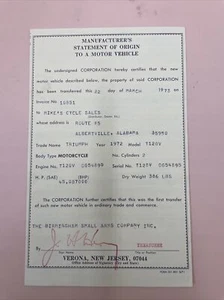 MANUFACTURER'S
STATEMENT OF ORIGIN
TO A MOTOR VEHICLE
The undersigned CORPORATION hereby certifies that the new
motor vehicle described below, the property of said CORPORATION
has been transferred this 20 day of MARCH 1973 on
Invoice No 16051
to MIKE'S CYCLE SALES
whose address is ROUTE #8
ALBERTVILLE, ALABAMA 35950
Trade Name TRIUMPH Year 1972 Model T120V
Body Type MOTORCYCLE No. Cylinders 2
Engine No. T120V Serial No. T120V
H.P. (SAE) (BHP) Dry Weight 386 LBS
The CORPORATION further certifies that this was the first transfer
of such new motor vehicle in ordinary trade and commerce.
THE BIRMINGHAM SMALL ARMS COMPANY INC.
TREASURER
VERONA, NEW JERSEY, 07044